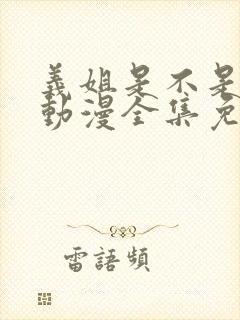 義姐是不是
動漫全集免
雷語頻